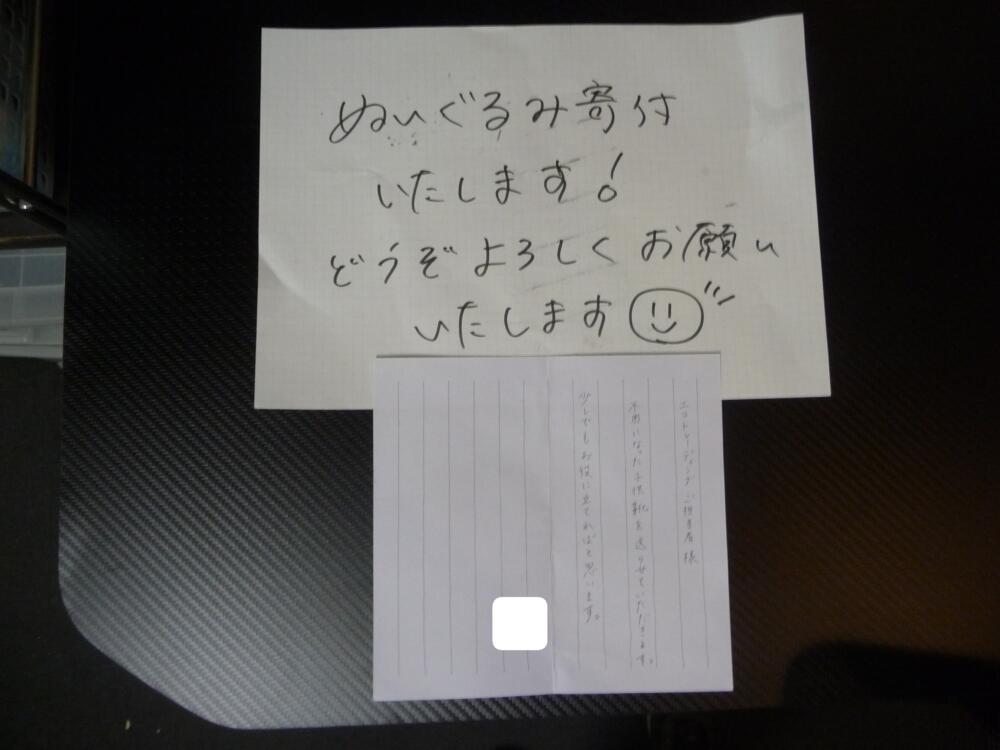 ぬいぐるみ寄付
いたします!
どうぞよろしくお願い
いたします
エコトレーディング ご担当者様
不用になった子供靴を送らせていただきます。
少しでもお役に立てればと思います。